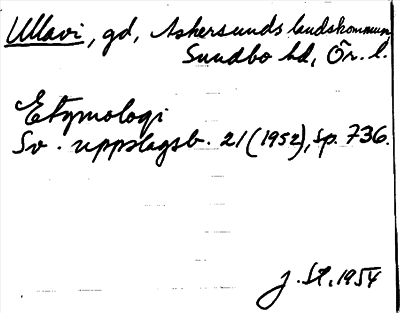 Ullavi, gd, Askersunds landskommun,
Sundbo hd, Ör. l.
Etymologi
Sv. uppslagsb. 21 (1952), sp. 736.
J. St. 1954